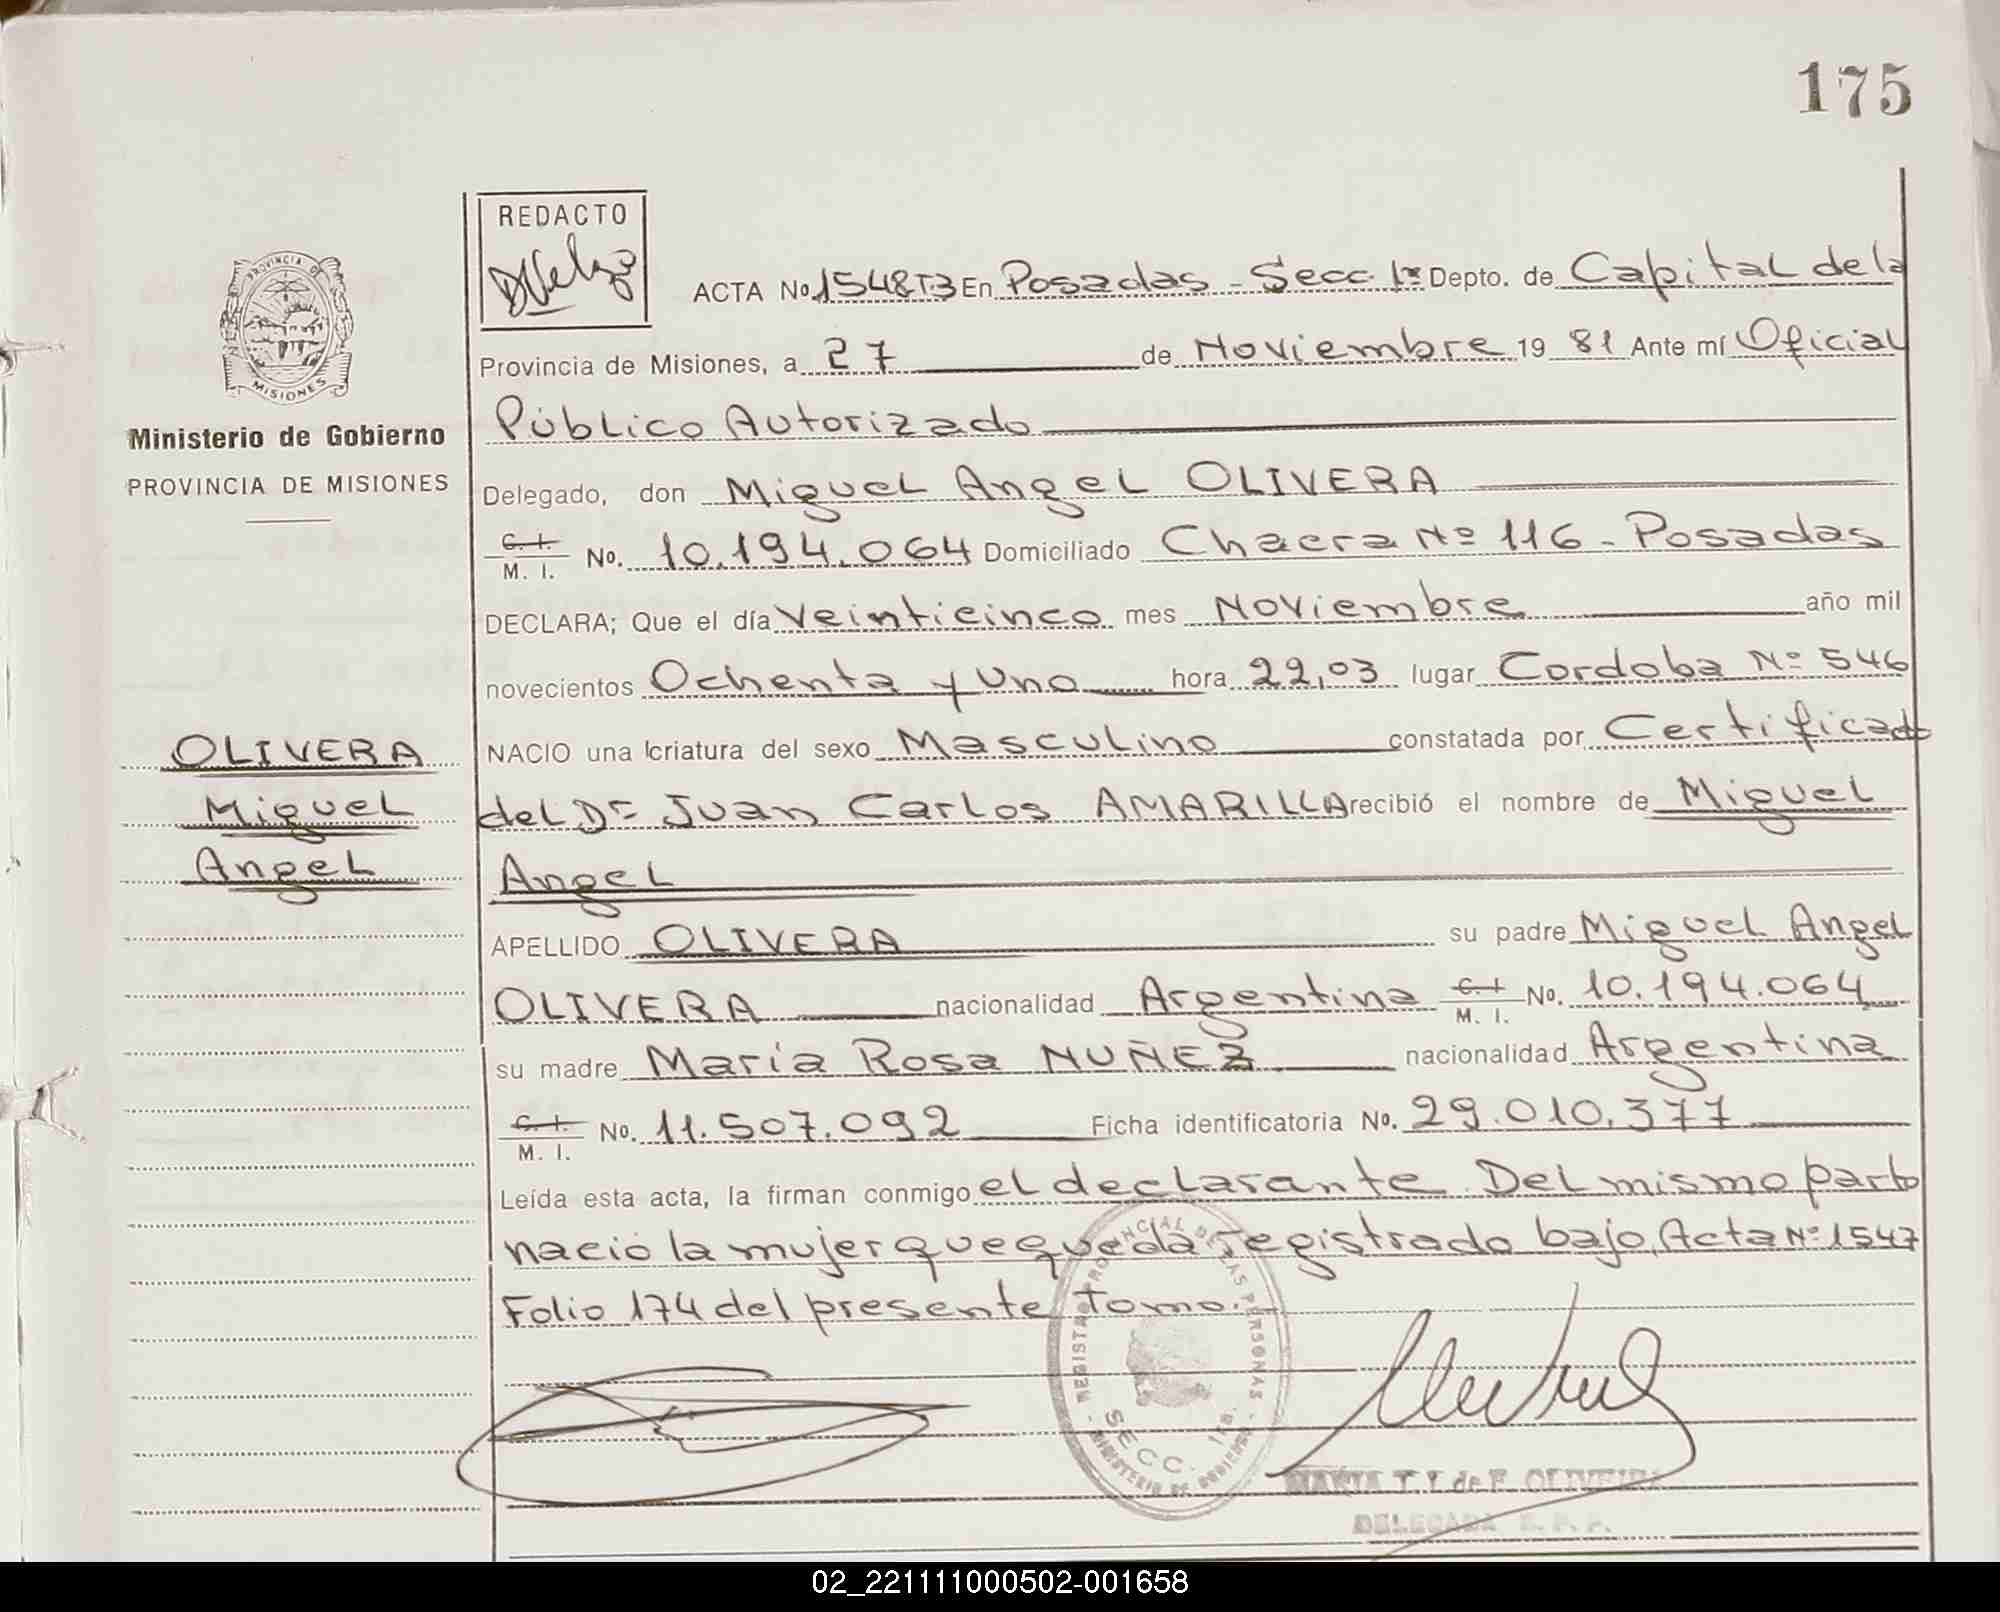 175
REDACTO
ACTA No. 1548T3 En Posadas - Secc 1ra Depto. de Capital de la
Provincia de Misiones, a 27 de Noviembre 19 81 Ante mí Oficial
Público Autorizado
Delegado, don Miguel Angel OLIVERA
C. I. / M. I. No. 10.194.064 Domiciliado Chacra Nº 116 - Posadas
DECLARA; Que el día Veinticinco mes Noviembre año mil
novecientos Ochenta y Uno hora 22,03 lugar Cordoba Nº 546
NACIO una criatura del sexo Masculino constatada por Certificado
del Dr Juan Carlos AMARILLA recibió el nombre de Miguel
Angel
APELLIDO OLIVERA su padre Miguel Angel
OLIVERA nacionalidad Argentina C. I. / M. I. No. 10.194.064
su madre María Rosa NUÑEZ nacionalidad Argentina
C. I. / M. I. No. 11.507.092 Ficha identificatoria No. 29.010.377
Leída esta acta, la firman conmigo el declarante. Del mismo parto
nació la mujer que queda registrado bajo Acta Nº 1547
Folio 174 del presente Tomo.
PROVINCIA DE MISIONES
Ministerio de Gobierno
PROVINCIA DE MISIONES
OLIVERA
Miguel
Angel
REGISTRO PROVINCIAL DE LAS PERSONAS
SECC. 1ra.
MINISTERIO DE GOBIERNO
MARIA T. Y. de F. OLIVEIRA
DELEGADA R. P. P.
02_221111000502-001658